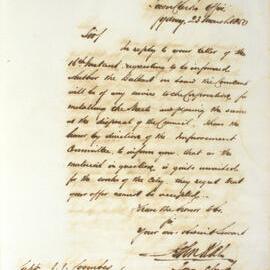 Town Clerk's Office
Sydney, 23 March 1850
Sir
In reply to your letter of the
16th Instant, requesting to be informed
whether the Ballast on board the
will be of any service to the Corporation for
metalling the Streets and placing the same
at the disposal of the Council, I have the
honor, by direction of the Improvement
Committee, to inform you, that as the
material in question, is quite unsuited
for the works of the City they regret that
your offer cannot be accepted.
I have the honor &c.
Sir
Your obt. Servant
Capt.